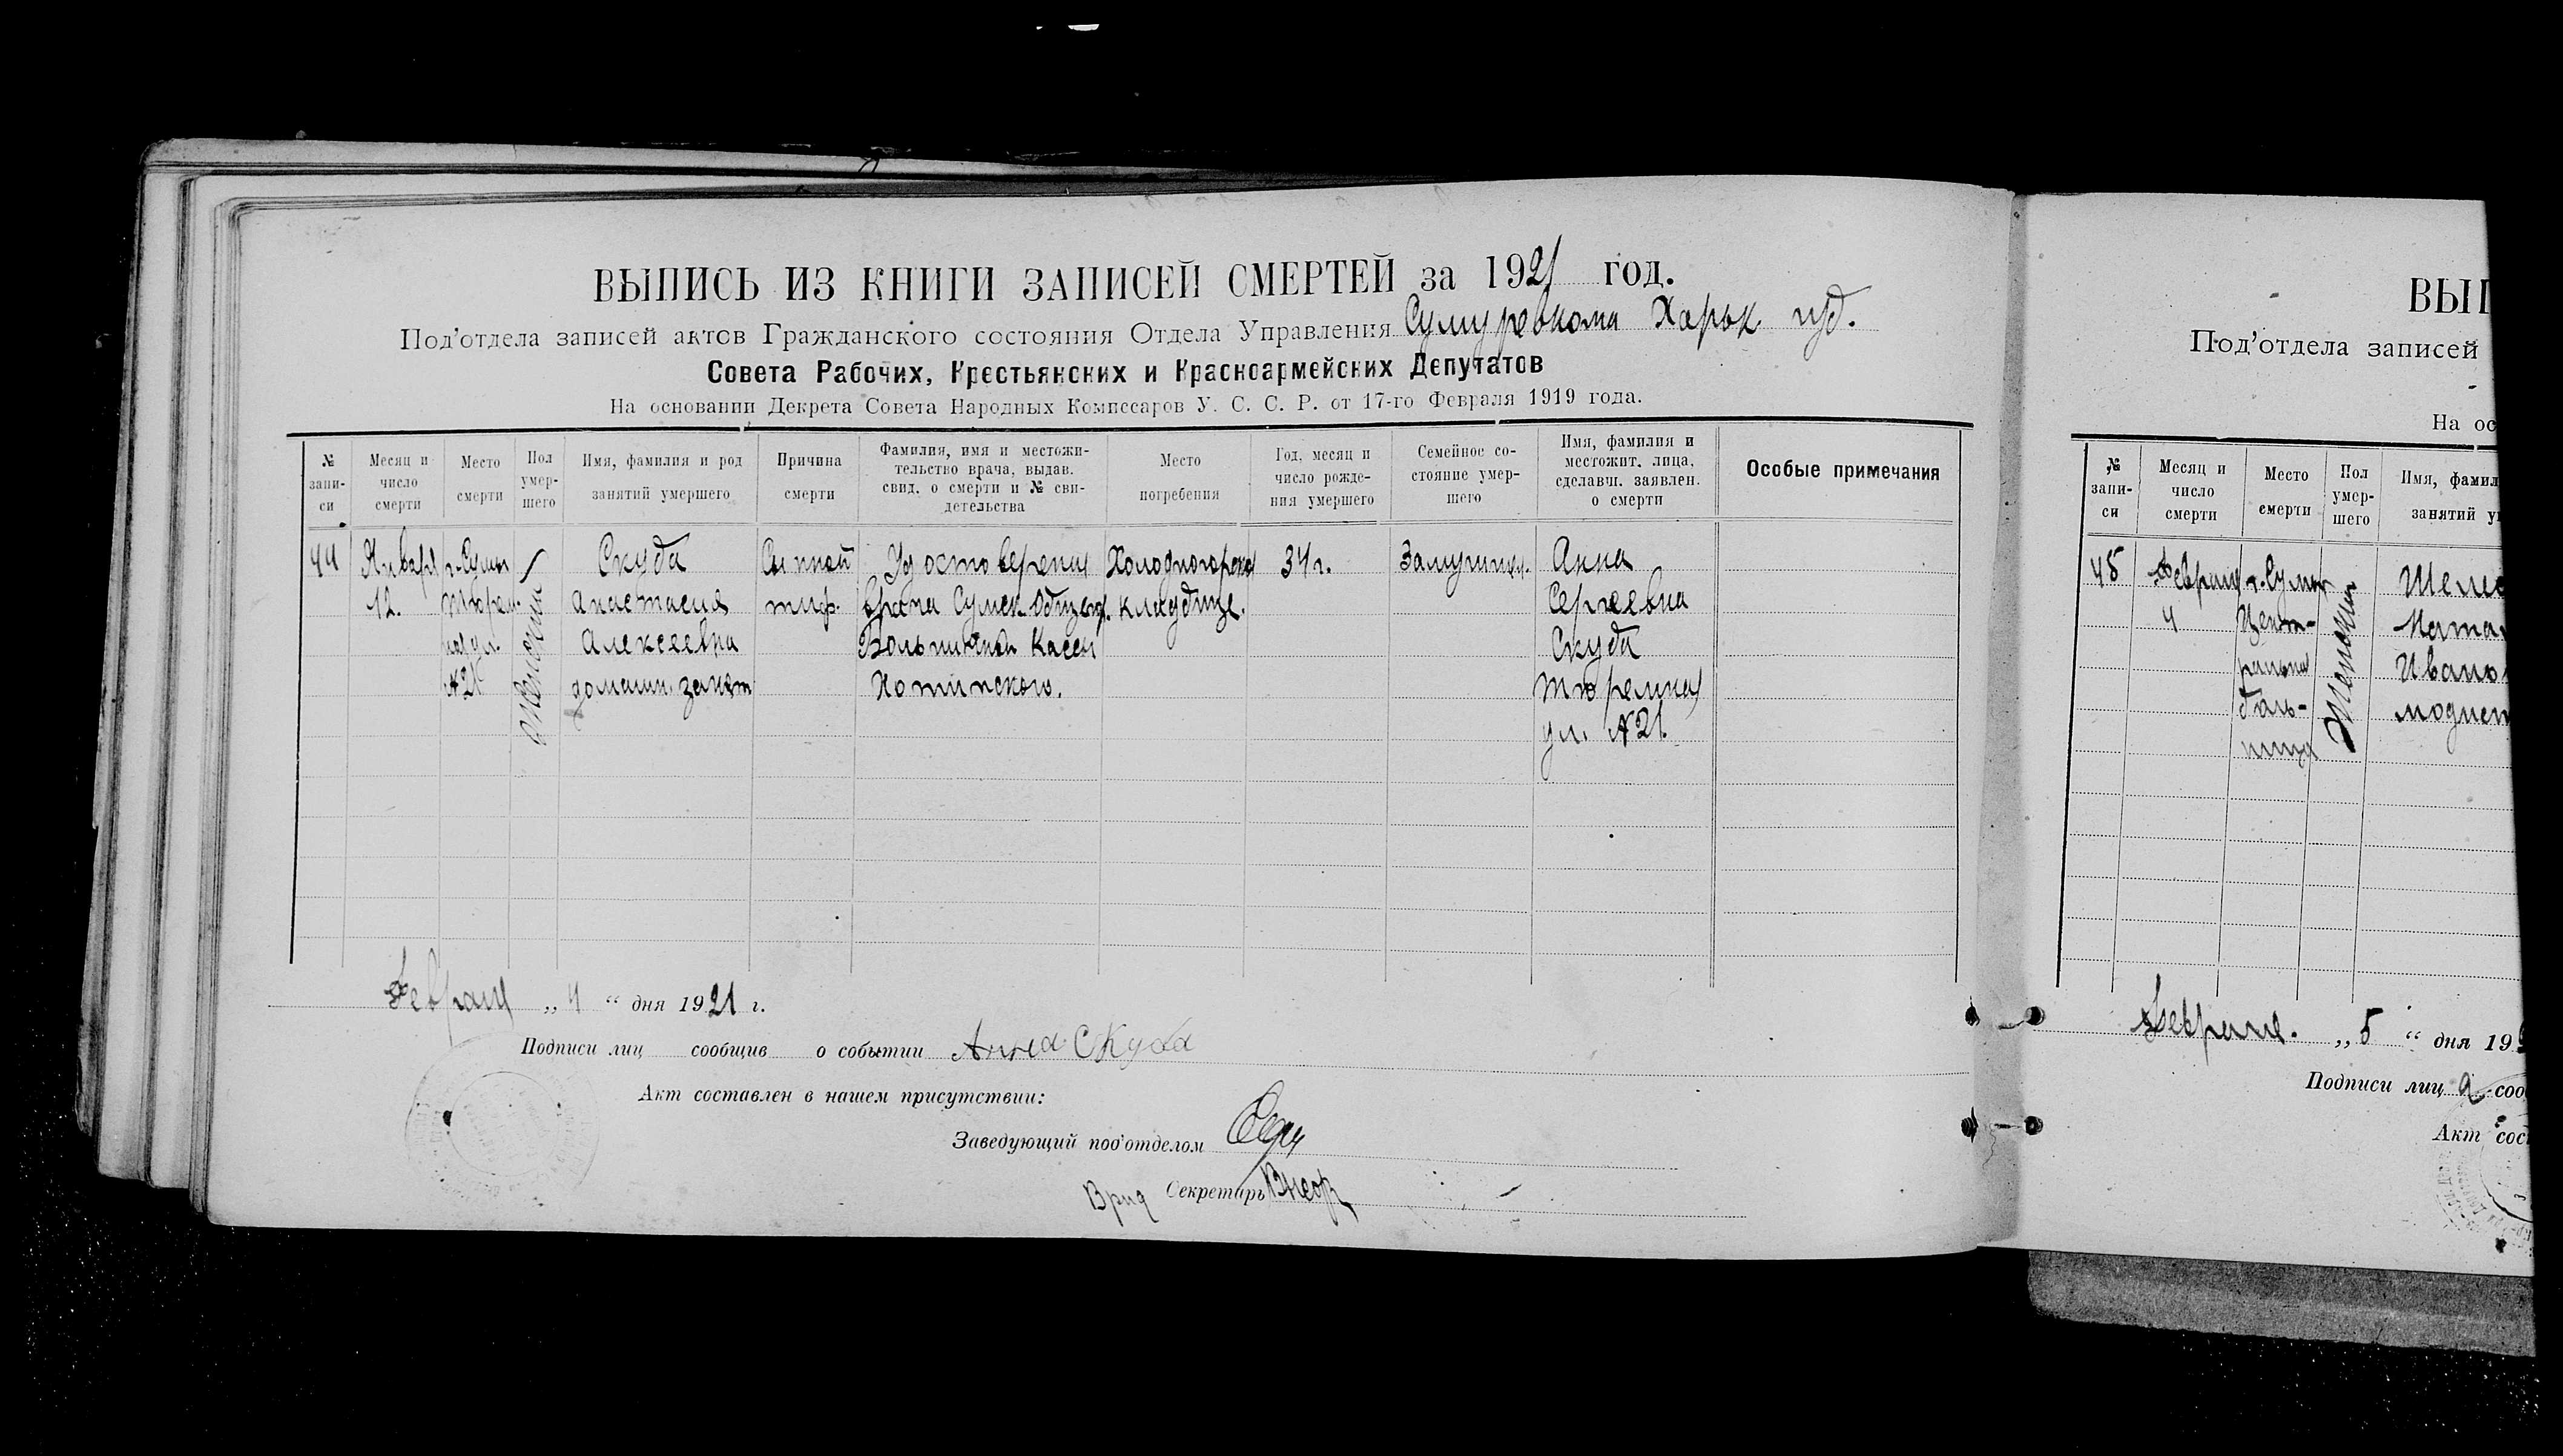 ВЫПИСЬ ИЗ КНИГИ ЗАПИСЕЙ СМЕРТЕЙ за 1921 год.
Под'отдела записей актов Гражданского состояния Отдела Управления Сумуревкома Харьк. губ.
Совета Рабочих, Крестьянских и Красноармейских Депутатов
На основании Декрета Совета Народных Комиссаров У. С. С. Р. от 17-го Февраля 1919 года.
№ запи-
си
Месяц и
число
смерти
Место
смерти
Пол
умер-
шего
Имя, фамилия и род
занятий умершего
Причина
смерти
Фамилия, имя и местожи-
тельство врача, выдав.
свид. о смерти и № сви-
детельства
Место
погребения
Год, месяц и
число рожде-
ния умершего
Семейное со-
стояние умер-
шего
Имя, фамилия и
местожит. лица,
сделавш. заявлен.
о смерти
Особые примечания
44
Января
12.
г. Сумы
Тюрем.
ул.
№21
женский
Скуда
Анастасия
Алексеевна
домашн. занят
Сыпной
тиф.
Удостоверения
врача Сумск. Общегор.
Больничной Кассы
Хотинского.
Холодногорское
кладбище.
34 г.
Замужняя.
Анна
Сергеевна
Скуда
Тюремная
ул. №21.
Февраля „4“ дня 1921 г.
Подписи лиц сообщив о событии Анна Скуда
Акт составлен в нашем присутствии:
Заведующий под'отделом
Врид Секретарь
ВЫП
Под'отдела записей
На ос
№
запи-
си
Месяц и
число
смерти
Место
смерти
Пол
умер-
шего
Имя, фамил
занятий у
45
Февраля
4
г. Сумы
Цент-
ральная
боль-
ница
Женский
Ната
Ивано
модист
Февраля. „5“ дня 19
Подписи лиц а соо
Акт сост